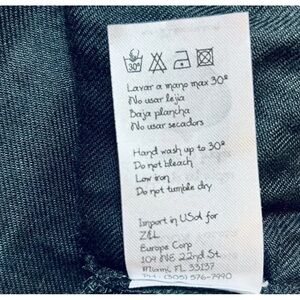 30º
Lavar a mano max 30º
No usar leja
Baja plancha
No usar secadors
Hand wash up to 30º
Do not bleach
Low iron
Do not tumble dry
Import in USA for
Z&L
Europe Corp
104 NE 22nd St.
Miami, FL 33137
PH: (305) 576-7990